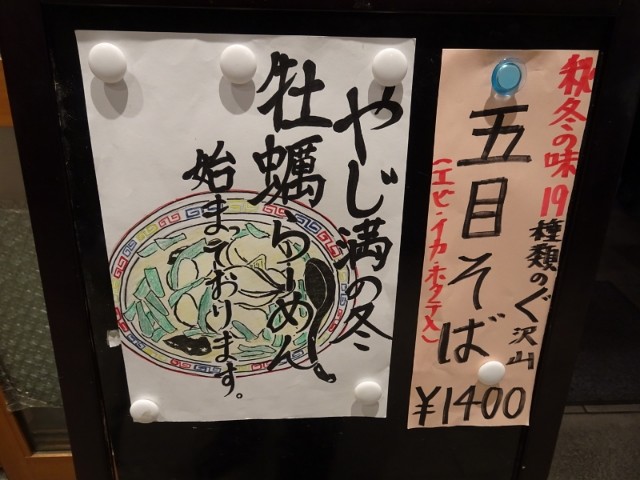 やじ満の冬
牡蠣らーめん
始まっております。
秋冬の味
19種類のぐ沢山
五目そば
(エビ・イカ・ホタテ〆)
¥1400